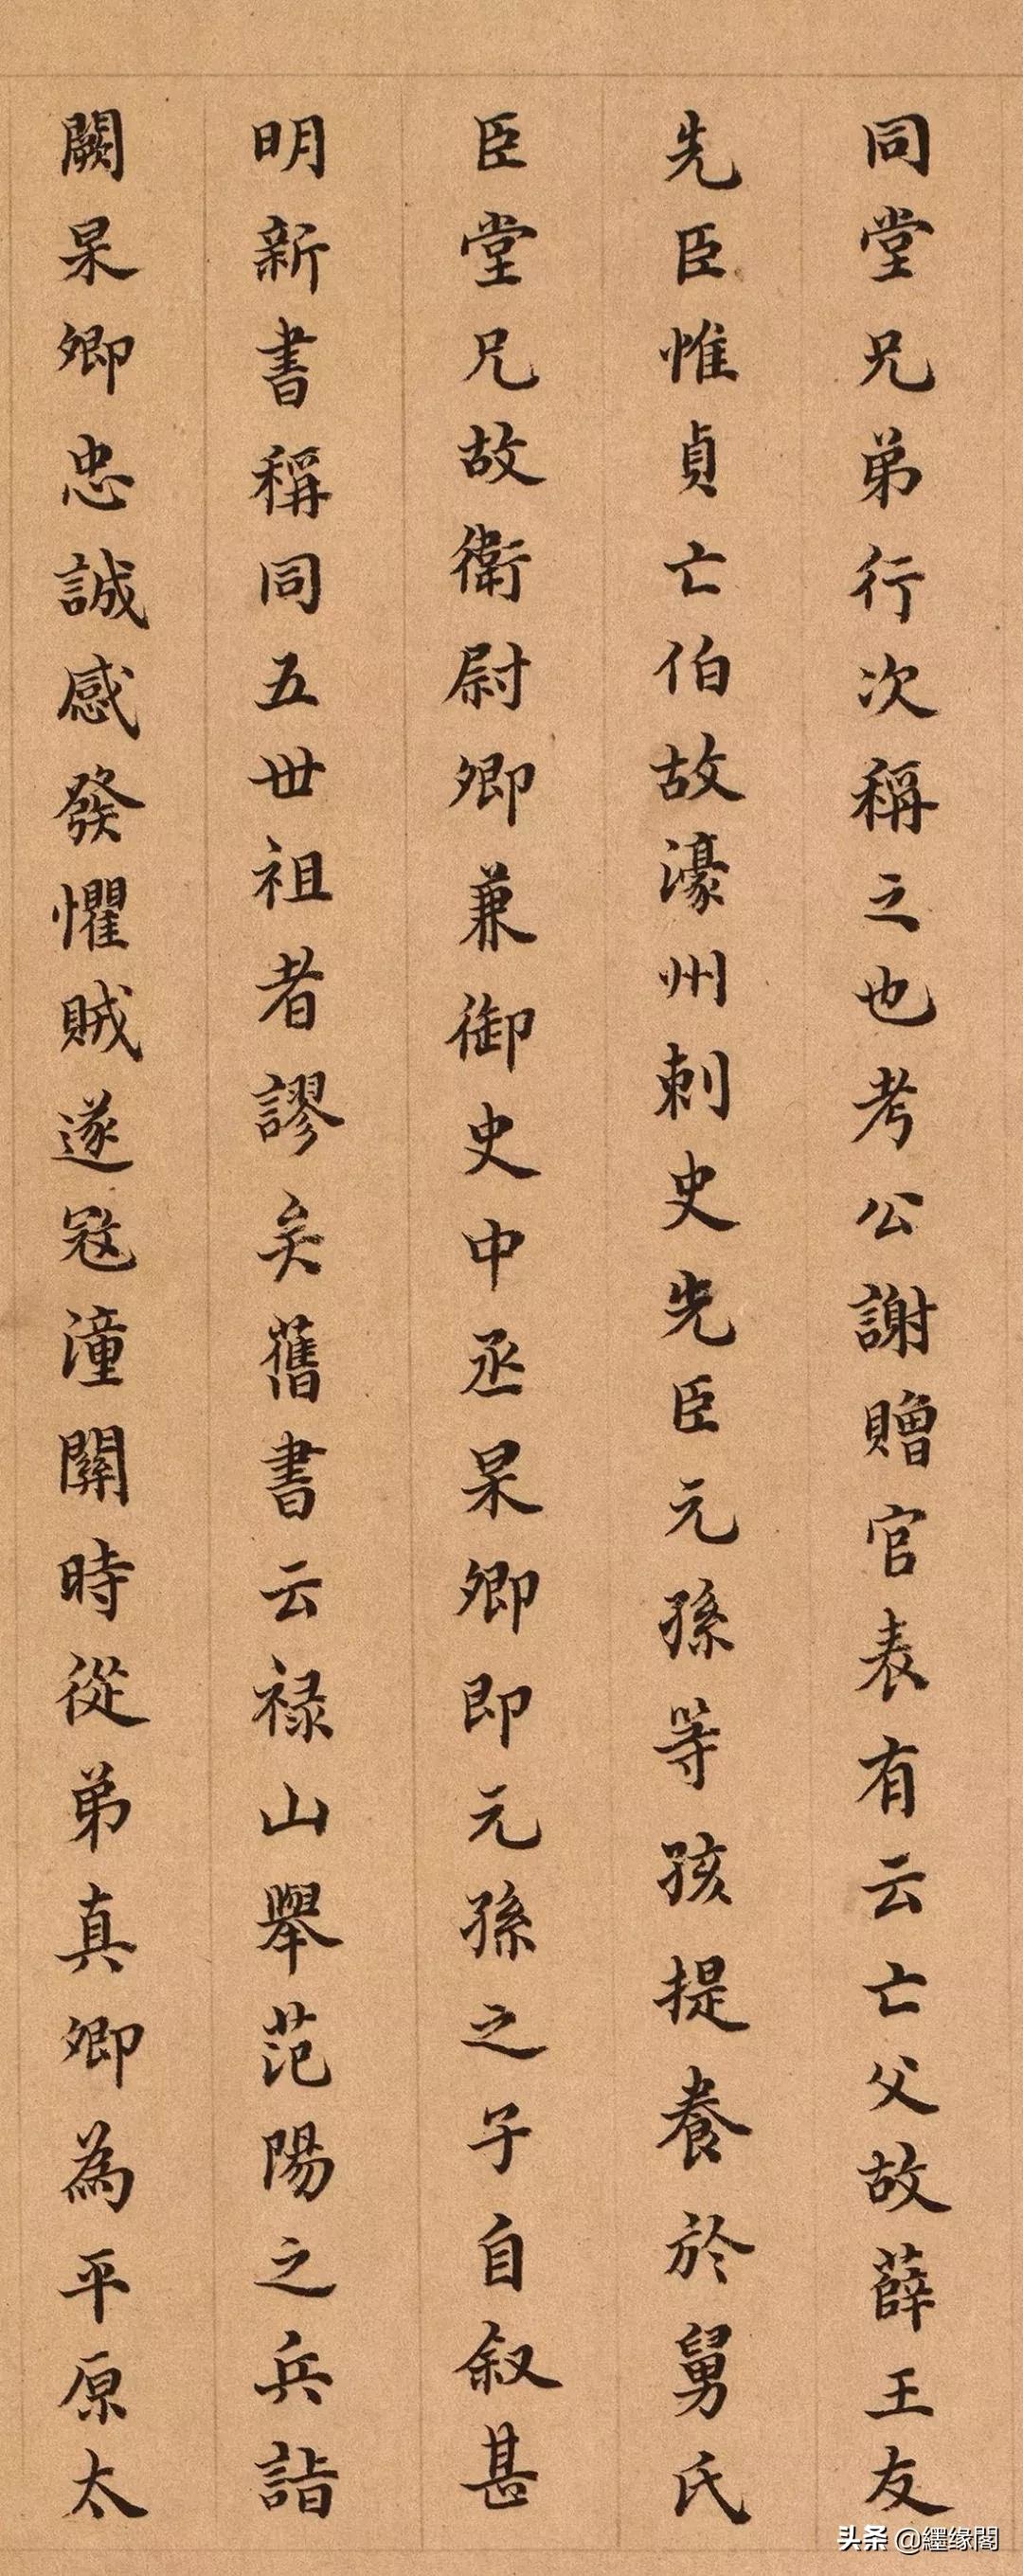 同堂兄弟行次稱之也考公謝贈官表有云亡父故薛王友
先臣惟貞亡伯故濠州刺史先臣元孫等孩提養於舅氏
臣堂兄故衛尉卿兼御史中丞杲卿即元孫之子自叙甚
明新書稱同五世祖者謬矣舊書云禄山舉范陽之兵詣
闕杲卿忠誠感發懼賊遂寇潼關時從弟真卿為平原太
头条 @纆缘閣